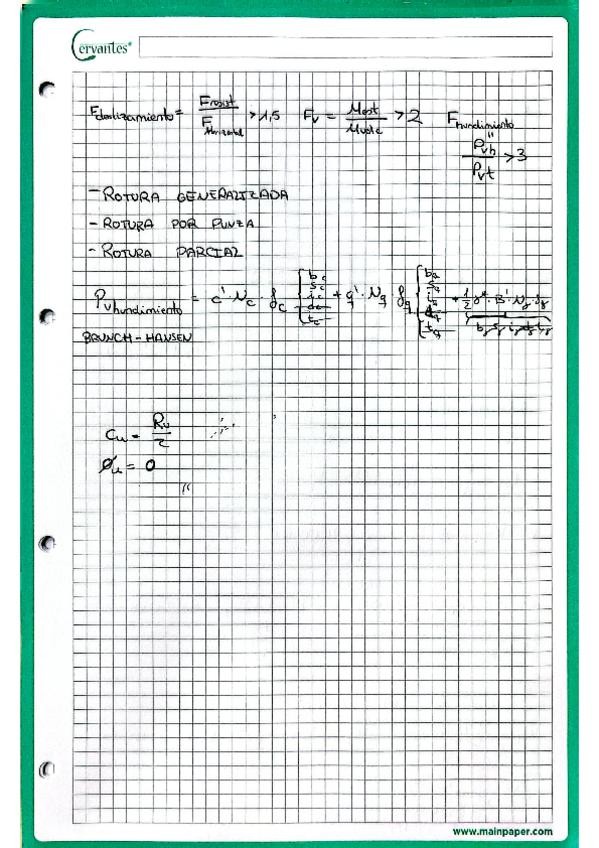 Cervantes®
F deslizamiento = F resist / F Horizontal > 1,5 Fv = Mest / Mvolc > 2 F hundimiento
" Pvh / Pvt > 3
- ROTURA GENERALIZADA
- ROTURA POR PUNZA
- ROTURA PARCIAL
Pv hundimiento = c' · Nc · fc { bc sc ic dc tc + q' · Nq · fq { bq sq iq dq tq + 1/2 γ* · B' · Nγ · fγ
BRUNCH - HANSEN
Cu = Ru / 2
Øu = 0
"
www.mainpaper.com